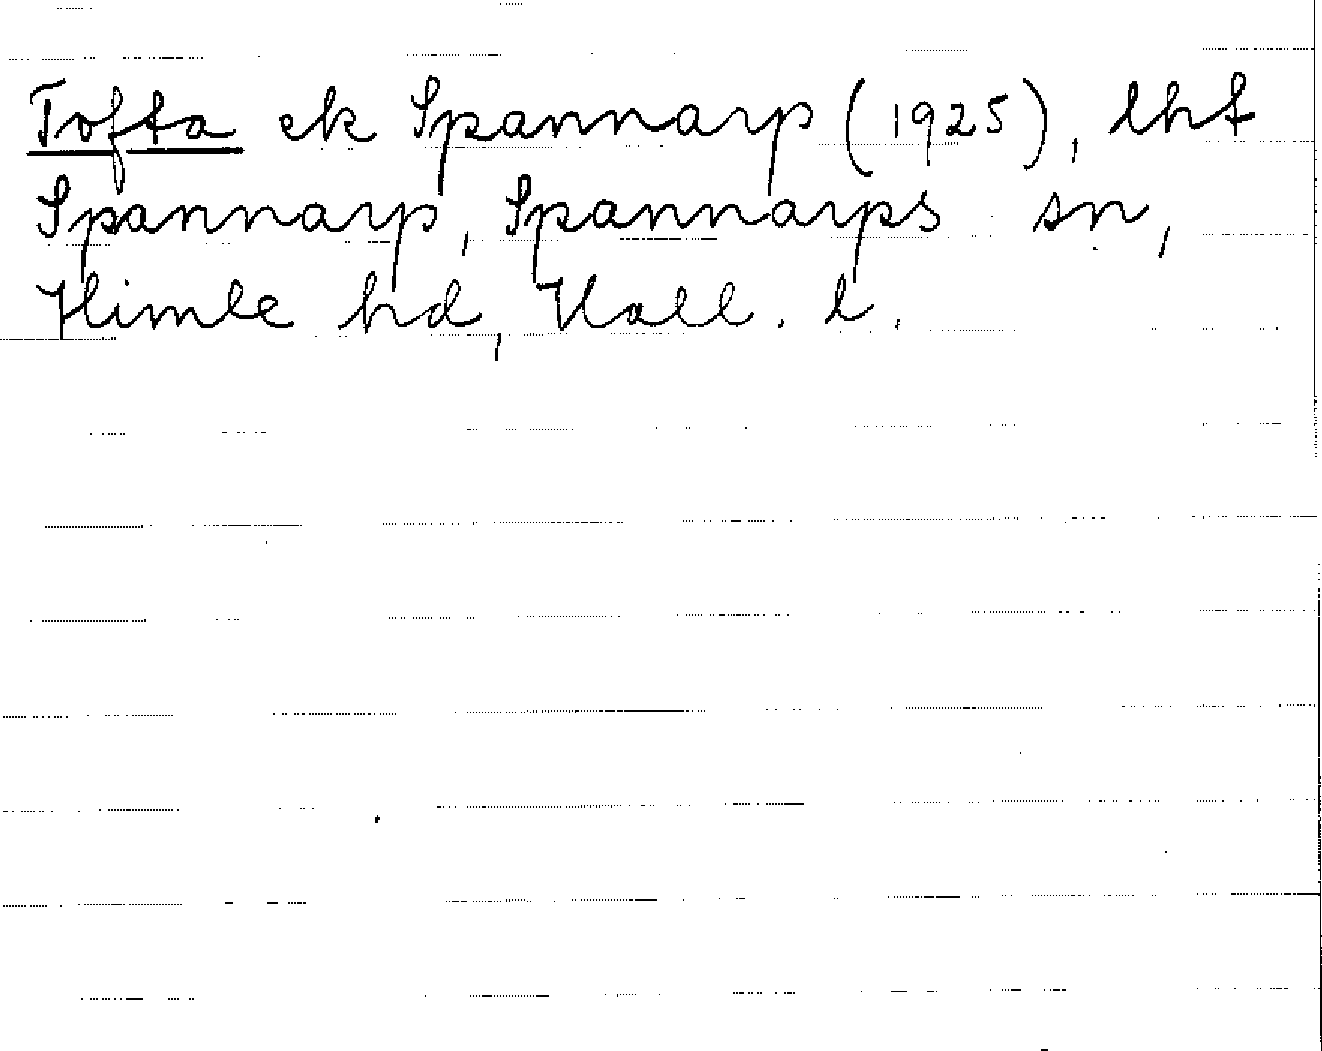 Tofta ek Spannarp (1925), lht
Spannarp, Spannarps sn,
Himle hd, Hall. l.